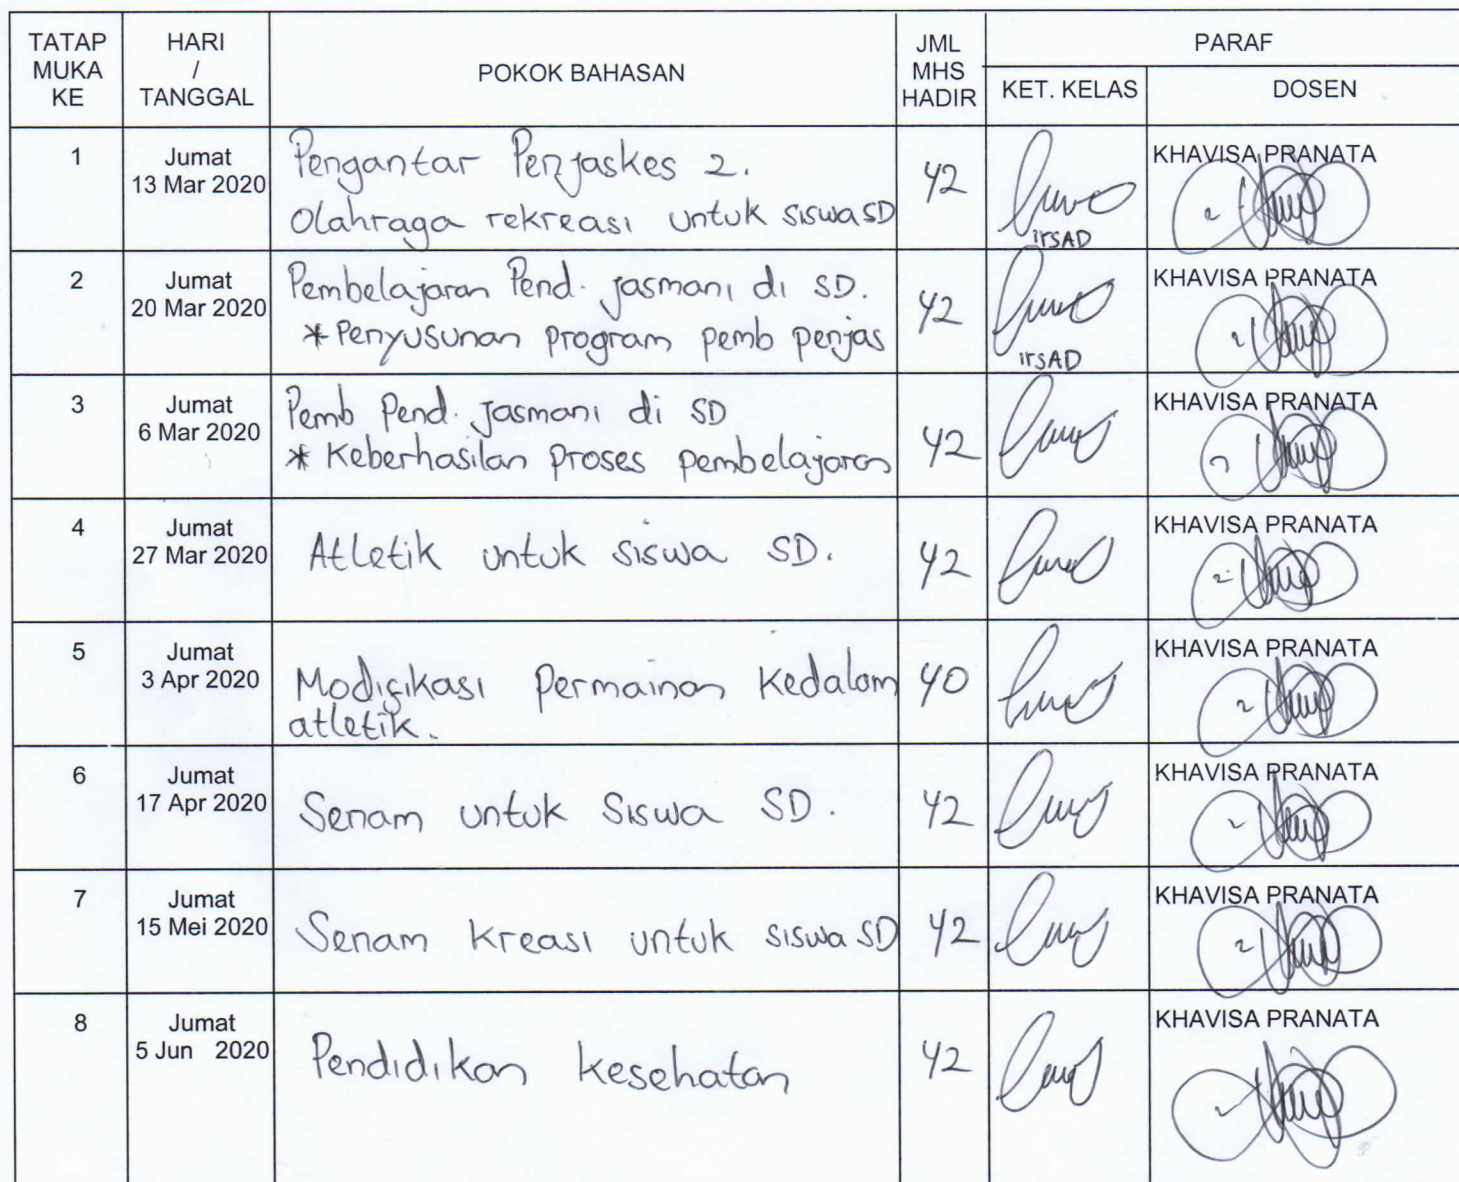 TATAP MUKA KE
HARI / TANGGAL
POKOK BAHASAN
JML MHS HADIR
PARAF
KET. KELAS
DOSEN
1
Jumat
13 Mar 2020
Pengantar Penjaskes 2.
Olahraga rekreasi untuk siswa SD
42
irsAD
KHAVISA PRANATA
2
Jumat
20 Mar 2020
Pembelajaran Pend. jasmani di SD.
* Penyusunan program pemb penjas
42
irsAD
KHAVISA PRANATA
3
Jumat
6 Mar 2020
Pemb Pend. jasmani di SD
* Keberhasilan proses pembelajaran
42
KHAVISA PRANATA
4
Jumat
27 Mar 2020
Atletik untuk siswa SD.
42
KHAVISA PRANATA
5
Jumat
3 Apr 2020
Modifikasi Permainan Kedalam
atletik.
40
KHAVISA PRANATA
6
Jumat
17 Apr 2020
Senam untuk Siswa SD.
42
KHAVISA PRANATA
7
Jumat
15 Mei 2020
Senam kreasi untuk siswa SD
42
KHAVISA PRANATA
8
Jumat
5 Jun 2020
Pendidikan kesehatan
42
KHAVISA PRANATA